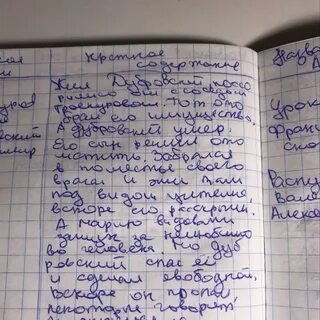 краткое
содержание
Жил Дубровский
Троекуровым. Тот от
брал его имущество,
А Дубровский умер.
Его сын решил ото
мстить. Забрался
в поместье своего
врага и жил там
под видом учителя
вскоре его рассекр
А Марию выдали
замуж за нелюбимо
го человека. Но Дуб
ровский спас её
и сделал свободной,
Вскоре он пропал
некоторые говорят,
Назва
Урок
Фран
ско
Распу
Вале
Алексе